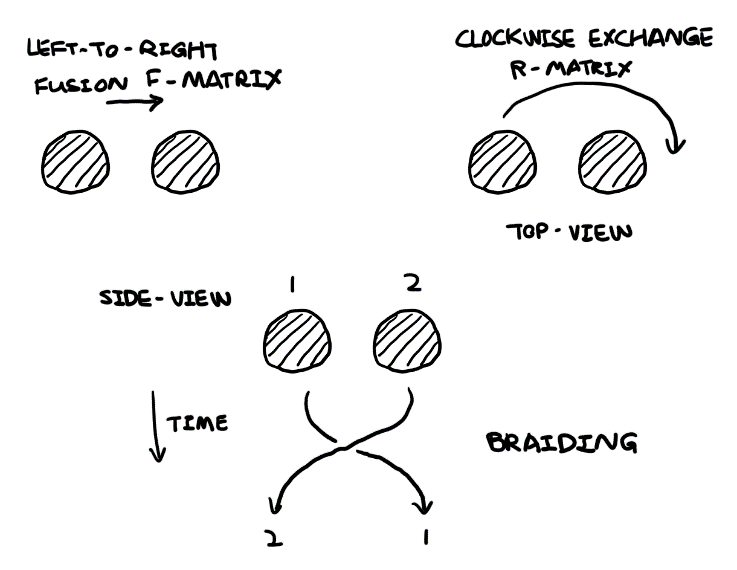 LEFT-TO-RIGHT
FUSION F-MATRIX
CLOCKWISE EXCHANGE
R-MATRIX
TOP-VIEW
SIDE-VIEW
1 2
TIME
BRAIDING
2 1